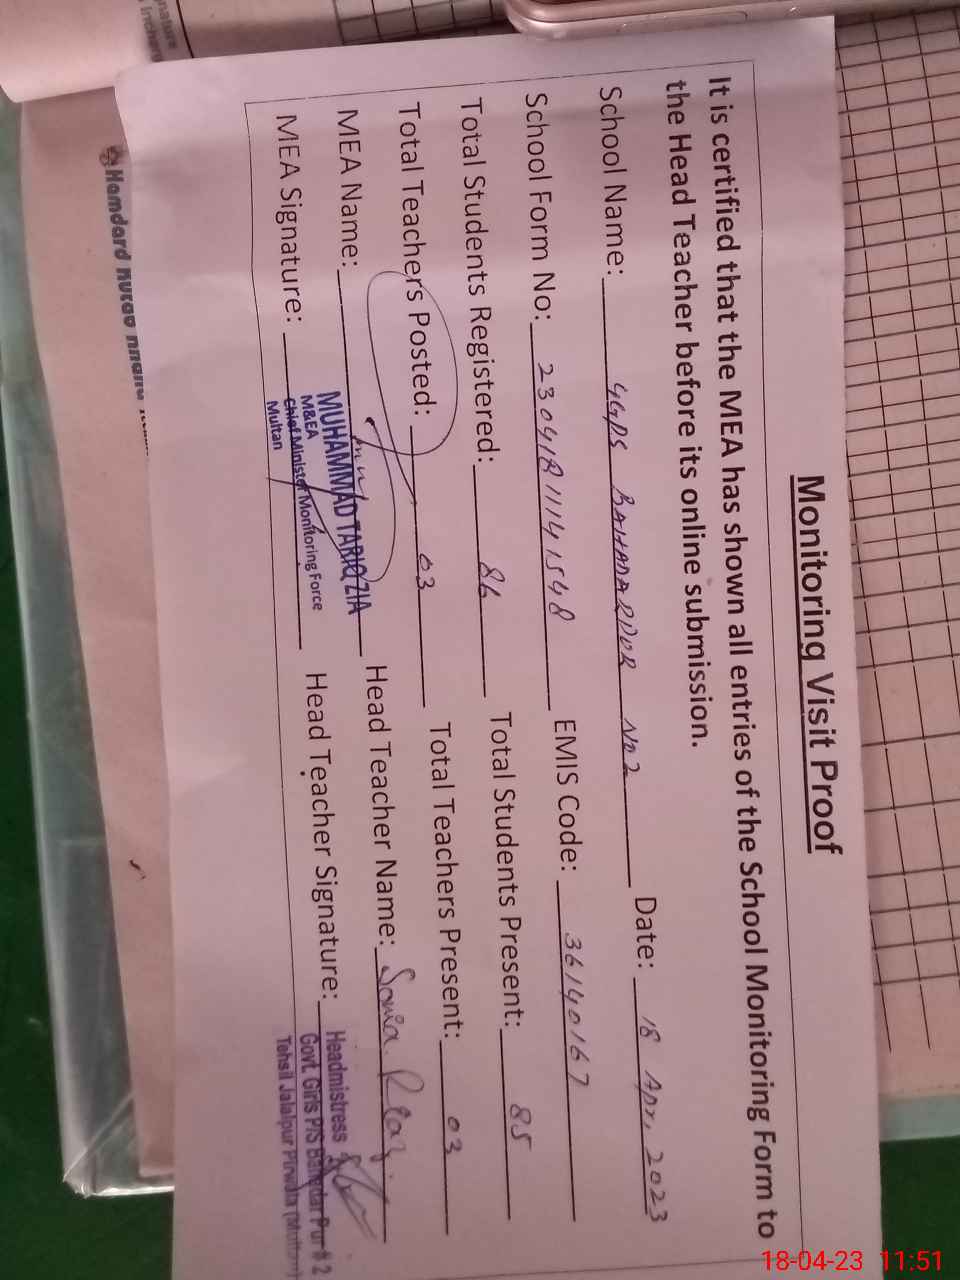 Monitoring Visit Proof
It is certified that the MEA has shown all entries of the School Monitoring Form to
the Head Teacher before its online submission.
School Name: GGPS BAHADARPUR No2 Date: 18 Apr, 2023
School Form No: 23041811141548 EMIS Code: 36140167
Total Students Registered: 86 Total Students Present: 85
Total Teachers Posted: 03 Total Teachers Present: 03
MEA Name: MUHAMMAD TARIQ ZIA Head Teacher Name: Sonia Riaz
M&EA
MEA Signature: Chief Minister Monitoring Force Head Teacher Signature: Headmistress
Multan
Govt. Girls P/S Bahadar Pur # 2
Tehsil Jalalpur Pirwala (Multan)
Hamdard
nature
18-04-23 11:51